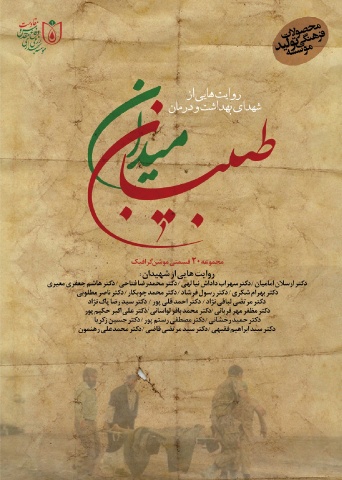 محصولات
فرهنگی تولید
موسسه
روایت‌هایی از
شهدای بهداشت و درمان
طبیبان میدان
مجموعه ۲۰ قسمتی موشن گرافیک
روایت هایی از شهیدان:
دکتر ارسلان آمامیان / دکتر سهراب داداش نیا تهی / دکتر محمدرضا فتاحی / دکتر هاشم جعفری معیری
دکتر بهرام شکری / دکتر رسول فرشاد / دکتر محمد جوبکار / دکتر ناصر مطلوبی
دکتر مرتضی لبافی نژاد / دکتر احمد قلی پور / دکتر سید رضا پاک نژاد
دکتر مظفر مهر قربانی / دکتر محمد بافو لواسانی / دکتر علی اکبر حکیم پور
دکتر حمید رحشانی / دکتر مصطفی رستم پور / دکتر حسین زکریا
دکتر سید ابراهیم فقیهی / دکتر سید مرتضی قاضی / دکتر محمدعلی رهنمون